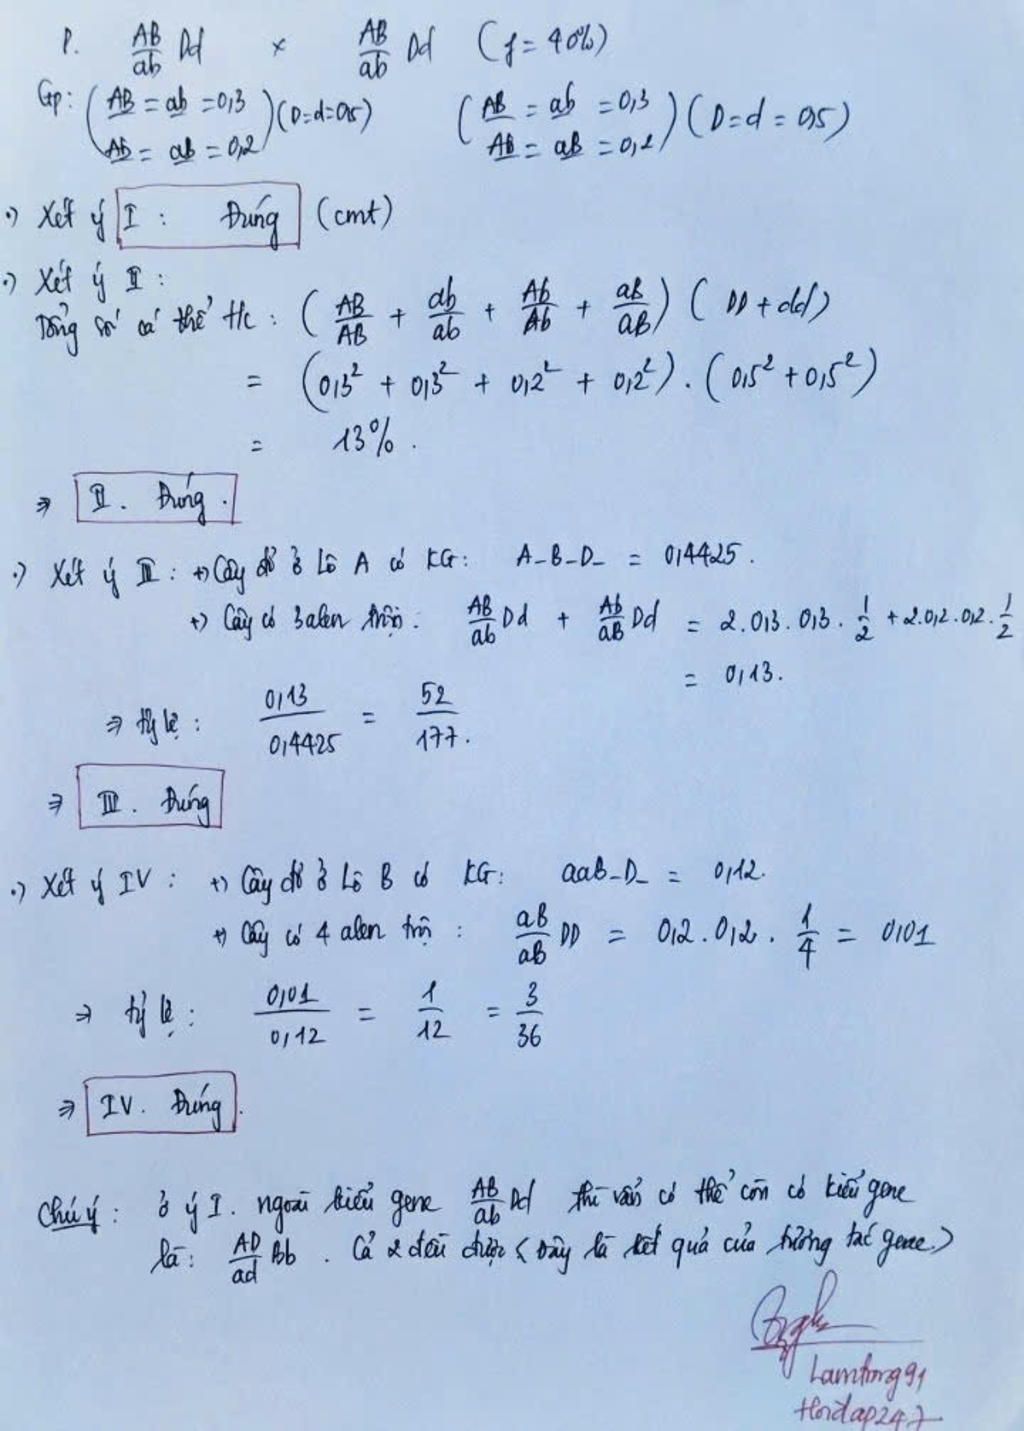 P. AB/ab Dd × AB/ab Dd (f = 40%)
Gp: (AB = ab = 0,3 (D=d=0,5) (AB = ab = 0,3 (D=d = 0,5)
Ab = aB = 0,2) Ab = aB = 0,2)
•) Xét ý I : Đúng (cmt)
•) Xét ý II :
Tổng số cá thể Hc : (AB/AB + ab/ab + Ab/Ab + aB/aB) (DD + dd)
= (0,3² + 0,3² + 0,2² + 0,2²) . (0,5² + 0,5²)
= 13% .
⇒ II . Đúng .
•) Xét ý III : +) Cây đỏ ở Lô A có KG: A-B-D- = 0,4425 .
+) Cây có 3 alen trội : AB/ab Dd + Ab/aB Dd = 2.0,3.0,3.1/2 + 2.0,2.0,2.1/2
= 0,13.
⇒ tỷ lệ : 0,13/0,4425 = 52/177.
⇒ III . Đúng
•) Xét ý IV : +) Cây đỏ ở Lô B có KG: aaB-D- = 0,12.
+) Cây có 4 alen trội : aB/aB DD = 0,2.0,2 . 1/4 = 0,01
⇒ tỷ lệ : 0,01/0,12 = 1/12 = 3/36
⇒ IV. Đúng .
Chú ý : ở ý I. ngoài kiểu gene AB/ab Dd thì vẫn có thể còn có kiểu gene
là : AD/ad Bb . Cả 2 đều được ( Đây là kết quả của tương tác gene.)
Lamtong91
Hoidap247